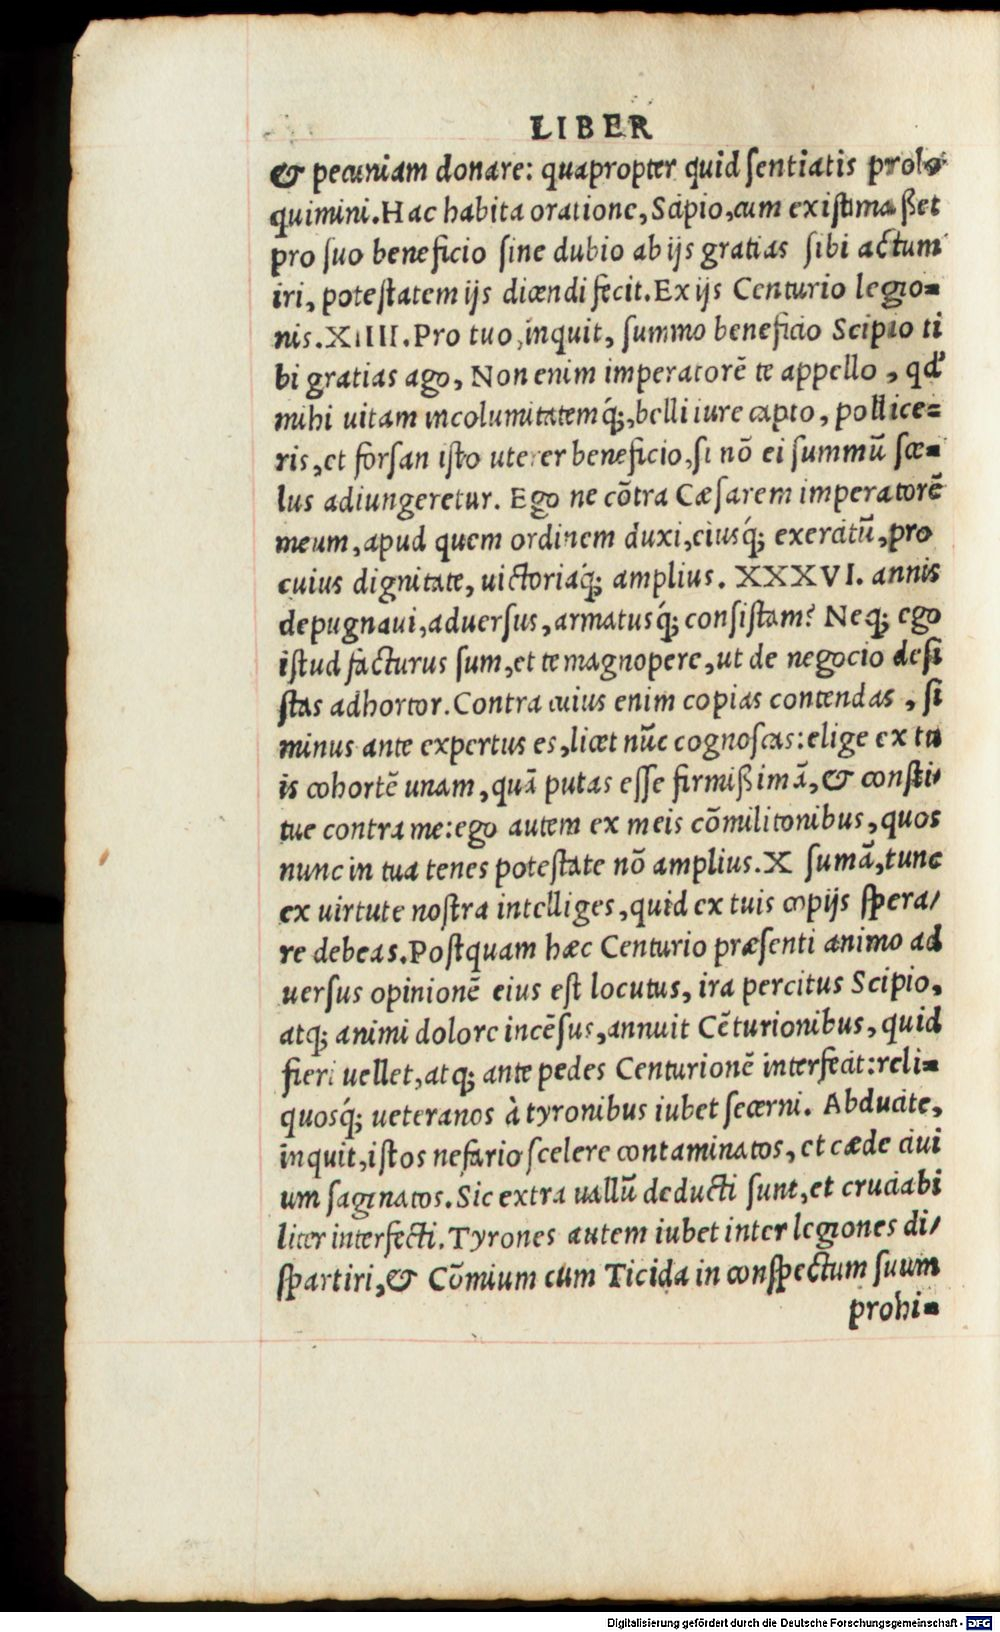 LIBER
& pecuniam donare: quapropter quid ſentiatis prolo
quimini. Hac habita oratione, Scipio, cum existimaßet
pro ſuo beneficio ſine dubio ab ijs gratias ſibi actum
iri, poteſtatem ijs dicendi fecit. Ex ijs Centurio legio=
nis. XIIII. Pro tuo, inquit, ſummo beneficio Scipio ti
bi gratias ago, Non enim imperatorē te appello, qd'
mihi uitam incolumitatemq́;, belli iure capto, pollice=
ris, et forſan iſto uterer beneficio, ſi nō ei ſummū ſce=
lus adiungeretur. Ego ne cōtra Cæſarem imperatorē
meum, apud quem ordinem duxi, eiusq́; exercitū, pro
cuius dignitate, uictoriaq́; amplius. XXXVI. annis
depugnaui, aduerſus, armatusq́; conſiſtam? Neq; ego
iſtud facturus ſum, et te magnopere, ut de negocio deſi
ſtas adhortor. Contra cuius enim copias contendas, ſi
minus ante expertus es, licet nūc cognoſcas: elige ex tu
is cohortē unam, quā putas eſſe firmißimā, & conſti/
tue contra me: ego autem ex meis cōmilitonibus, quos
nunc in tua tenes poteſtate nō amplius. X ſumā, tunc
ex uirtute noſtra intelliges, quid ex tuis copijs ſpera/
re debeas. Poſtquam hæc Centurio præſenti animo ad
uerſus opinionē eius eſt locutus, ira percitus Scipio,
atq; animi dolore incēſus, annuit Cēturionibus, quid
fieri uellet, atq; ante pedes Centurionē interfecit: reli=
quosq́; ueteranos à tyronibus iubet ſecerni. Abducite,
inquit, iſtos nefario ſcelere contaminatos, et cæde ciui
um ſaginatos. Sic extra uallū deducti ſunt, et cruciabi
liter interfecti. Tyrones autem iubet inter legiones di/
ſpartiri, & Cōmium cum Ticida in conſpectum ſuum
prohi=
Digitalisierung gefördert durch die Deutsche Forschungsgemeinschaft - DFG